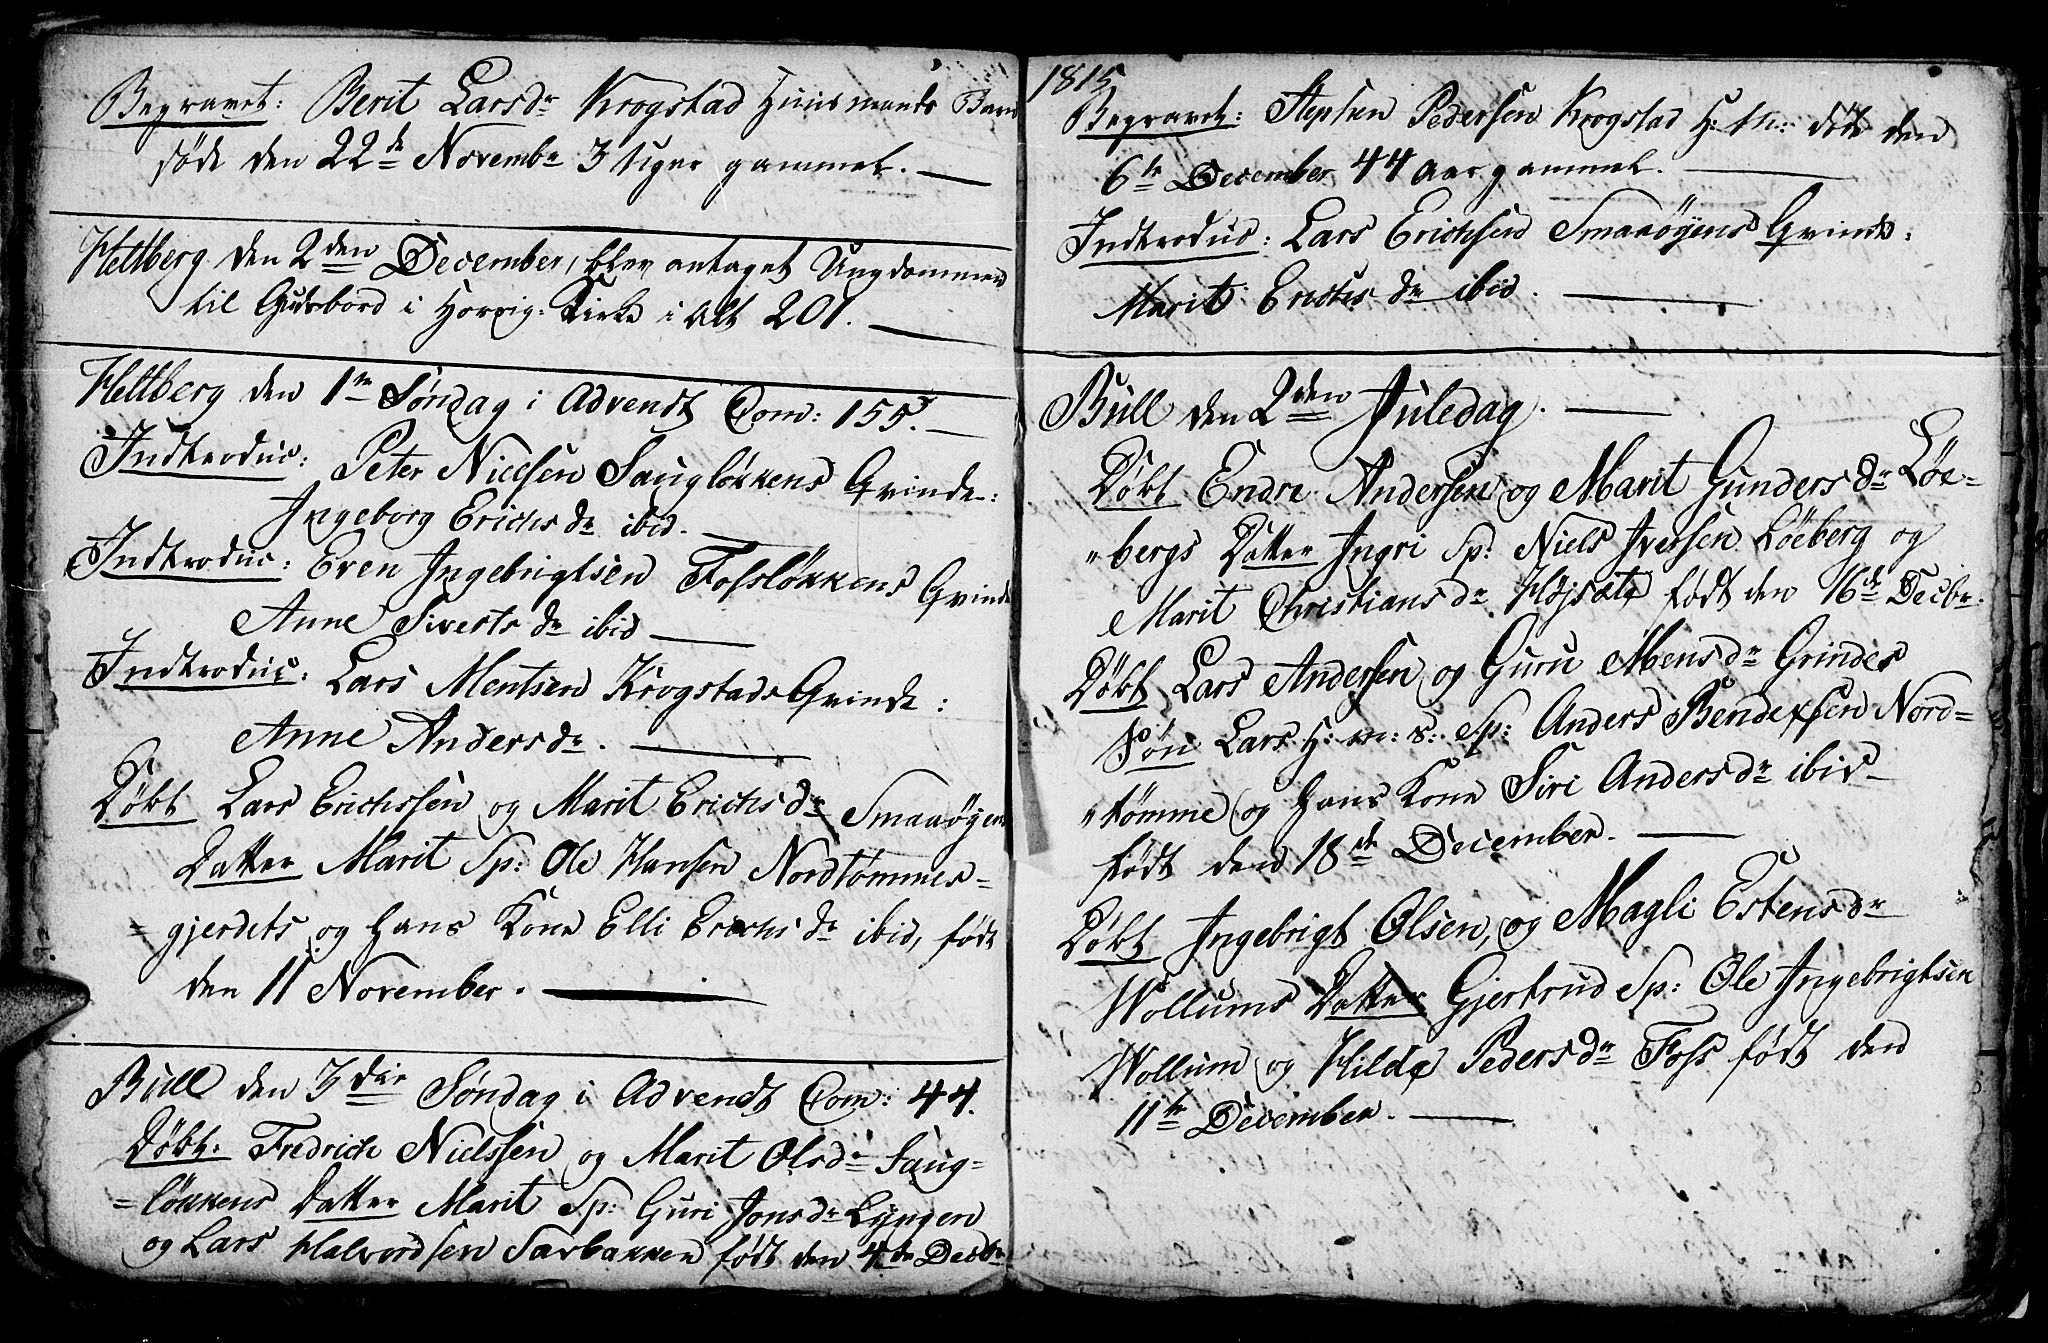 Begravet: Berit Larsdr Krogstad Huusmands Barn
døde den 22de Novembr 3 Uger gammel.
Heltberg den 2den December, blev antaget Ungdommen
til Gudsbord i Horrig: Kirke i Alt 201.
Heltberg den 1te Søndag i Advendt Com: 155.
Indtroduc: Peter Nielsen Saugløkkens Qvinde:
Ingeborg Erichsdr ibid.
Indtroduc: Even Ingebrigtsen Fossløkkens Qvinde
Anne Sivertsdr ibid
Indtroduc: Lars Mentsen Krogstads Qvinde:
Anne Andersdr.
Døbt Lars Erichssen og Marit Erichsdr Smaaøyens
Datter Marit Sp: Ole Hansen Nordtømmes=
=gjerdets og Hans Kone Elli Erichsdr ibid, født
den 11 November.
Bull den 3die Søndag i Advendt Com: 44.
Døbt: Fredrich Nielssen og Marit Olsdr Saug=
=løkkens Datter Marit Sp: Guri Jonsdr Lyngen
og Lars Halvordsen Sarbakken født den 4de Decbr
1815
Begravet: Stephen Pedersen Krogstad H: m: døde den
6te December 44 Aar gammel.
Indtroduc: Lars Erichsens Smaaøyens Qvinde:
Marit Erichsdr ibid.
Bull den 2den Juledag.
Døbt Endre Andersen og Marit Gundersdr Løe=
"bergs Datter Ingri Sp: Niels Iversen Løeberg og
Marit Christiansdr Højsæt født den 16de Decbr.
Døbt Lars Andersen og Guru Mensdr Grindes
Søn Lars H: m: s: Sp: Anders Bendexsen Nord=
"tømme og Hans Kone Siri Andersdr ibid
født den 18de December.
Døbt Ingebrigt Olsen, og Magli Estensdr
Wollums Datter Gjertrud Sp: Ole Ingebrigtsen
Wollum og Hilda Pedersdr Foss født den
11te December.